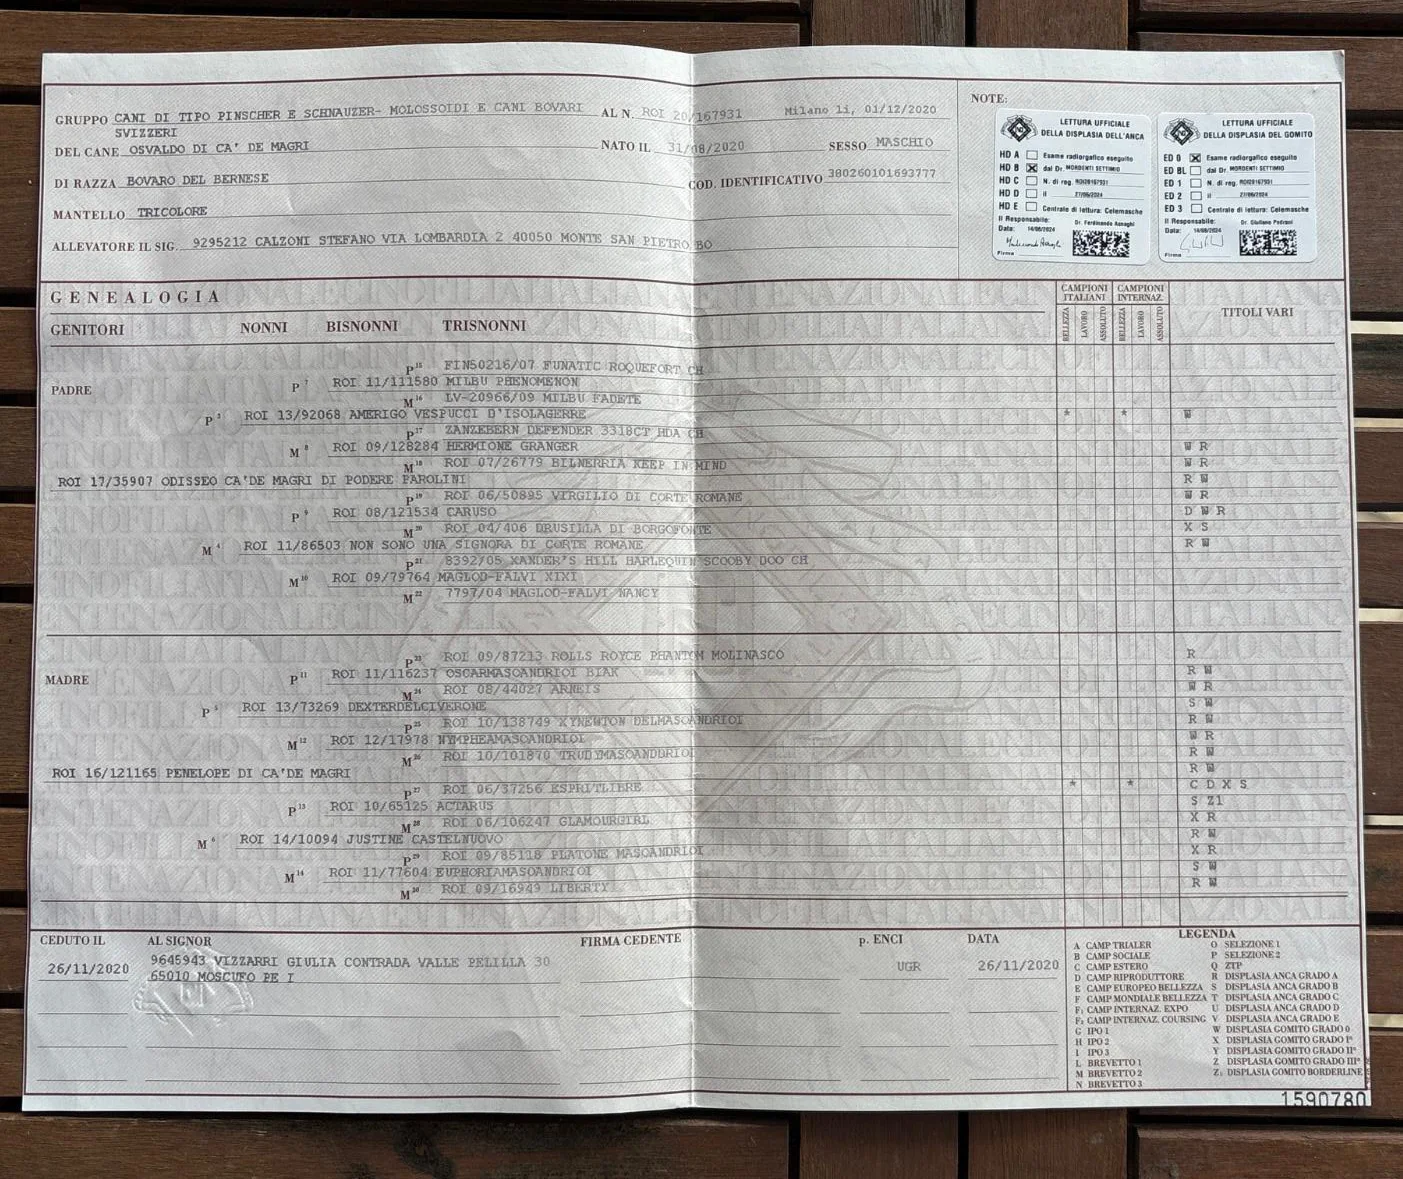 GRUPPO CANI DI TIPO PINSCHER E SCHNAUZER- MOLOSSOIDI E CANI BOVARI SVIZZERI AL N. ROI 20/167931 Milano li, 01/12/2020
DEL CANE OSVALDO DI CA' DE MAGRI NATO IL 31/08/2020 SESSO MASCHIO
DI RAZZA BOVARO DEL BERNESE COD. IDENTIFICATIVO 380260101693777
MANTELLO TRICOLORE
ALLEVATORE IL SIG. 9295212 CALZONI STEFANO VIA LOMBARDIA 2 40050 MONTE SAN PIETRO BO
NOTE:
LETTURA UFFICIALE
DELLA DISPLASIA DELL'ANCA
HD A Esame radiorgafico eseguito
HD B X dal Dr. MORDENTI SETTIMIO
HD C N. di reg. ROI20167931
HD D il 27/06/2024
HD E Centrale di lettura: Celemasche
Il Responsabile: Dr. Ferdinando Asnaghi
Data: 14/08/2024
Firma
LETTURA UFFICIALE
DELLA DISPLASIA DEL GOMITO
ED 0 X Esame radiorgafico eseguito
ED BL dal Dr. MORDENTI SETTIMIO
ED 1 N. di reg. ROI20167931
ED 2 il 27/06/2024
ED 3 Centrale di lettura: Celemasche
Il Responsabile: Dr. Giuliano Pedrani
Data: 14/08/2024
Firma
GENEALOGIA
CAMPIONI ITALIANI CAMPIONI INTERNAZ.
GENITORI NONNI BISNONNI TRISNONNI BELLEZZA LAVORO ASSOLUTO BELLEZZA LAVORO ASSOLUTO TITOLI VARI
P 15 FIN50216/07 FUNATIC ROQUEFORT CH
PADRE P 7 ROI 11/111580 MILBU PHENOMENON
M 16 LV-20966/09 MILBU FADETE
P 3 ROI 13/92068 AMERIGO VESPUCCI D'ISOLAGERRE * * W
P 17 ZANZEBERN DEFENDER 3318CT HDA CH
M 8 ROI 09/128284 HERMIONE GRANGER W R
M 18 ROI 07/26779 BILNERRIA KEEP IN MIND W R
ROI 17/35907 ODISSEO CA'DE MAGRI DI PODERE PAROLINI R W
P 19 ROI 06/50895 VIRGILIO DI CORTE ROMANE W R
P 9 ROI 08/121534 CARUSO D W R
M 20 ROI 04/406 DRUSILLA DI BORGOFONTE X S
M 4 ROI 11/86503 NON SONO UNA SIGNORA DI CORTE ROMANE R W
P 21 8392/05 XANDER'S HILL HARLEQUIN SCOOBY DOO CH
M 10 ROI 09/79764 MAGLOD-FALVI XIXI
M 22 7797/04 MAGLOD-FALVI NANCY
P 23 ROI 09/87213 ROLLS ROYCE PHANTOM MOLINASCO R
MADRE P 11 ROI 11/116237 OSCARMASCANDRIOI BIAK R W
M 24 ROI 08/44027 ARNEIS W R
P 5 ROI 13/73269 DEXTERDELCIVERONE S W
P 25 ROI 10/138749 XYNEWTON DELMASCANDRIOI R W
M 12 ROI 12/17978 NYMPHEAMASCANDRIOI W R
M 26 ROI 10/101870 TRUDYMASCANDDRIOI R W
ROI 16/121165 PENELOPE DI CA'DE MAGRI R W
P 27 ROI 06/37256 ESPRITLIBRE * * C D X S
P 13 ROI 10/65125 ACTARUS S Z1
M 28 ROI 06/106247 GLAMOURGIRL X R
M 6 ROI 14/10094 JUSTINE CASTELNUOVO R W
P 29 ROI 09/85118 PLATONE MASCANDRIOI X R
M 14 ROI 11/77604 EUPHORIAMASCANDRIOI S W
M 30 ROI 09/16949 LIBERTY R W
CEDUTO IL AL SIGNOR FIRMA CEDENTE p. ENCI DATA
26/11/2020 9645943 VIZZARRI GIULIA CONTRADA VALLE PELILLA 30 UGR 26/11/2020
65010 MOSCUFO PE I
LEGENDA
A CAMP TRIALER O SELEZIONE 1
B CAMP SOCIALE P SELEZIONE 2
C CAMP ESTERO Q ZTP
D CAMP RIPRODUTTORE R DISPLASIA ANCA GRADO A
E CAMP EUROPEO BELLEZZA S DISPLASIA ANCA GRADO B
F CAMP MONDIALE BELLEZZA T DISPLASIA ANCA GRADO C
F1 CAMP INTERNAZ. EXPO U DISPLASIA ANCA GRADO D
F2 CAMP INTERNAZ. COURSING V DISPLASIA ANCA GRADO E
G IPO 1 W DISPLASIA GOMITO GRADO 0
H IPO 2 X DISPLASIA GOMITO GRADO I°
I IPO 3 Y DISPLASIA GOMITO GRADO II°
L BREVETTO 1 Z DISPLASIA GOMITO GRADO III°
M BREVETTO 2 Z1 DISPLASIA GOMITO BORDERLINE
N BREVETTO 3
1590780